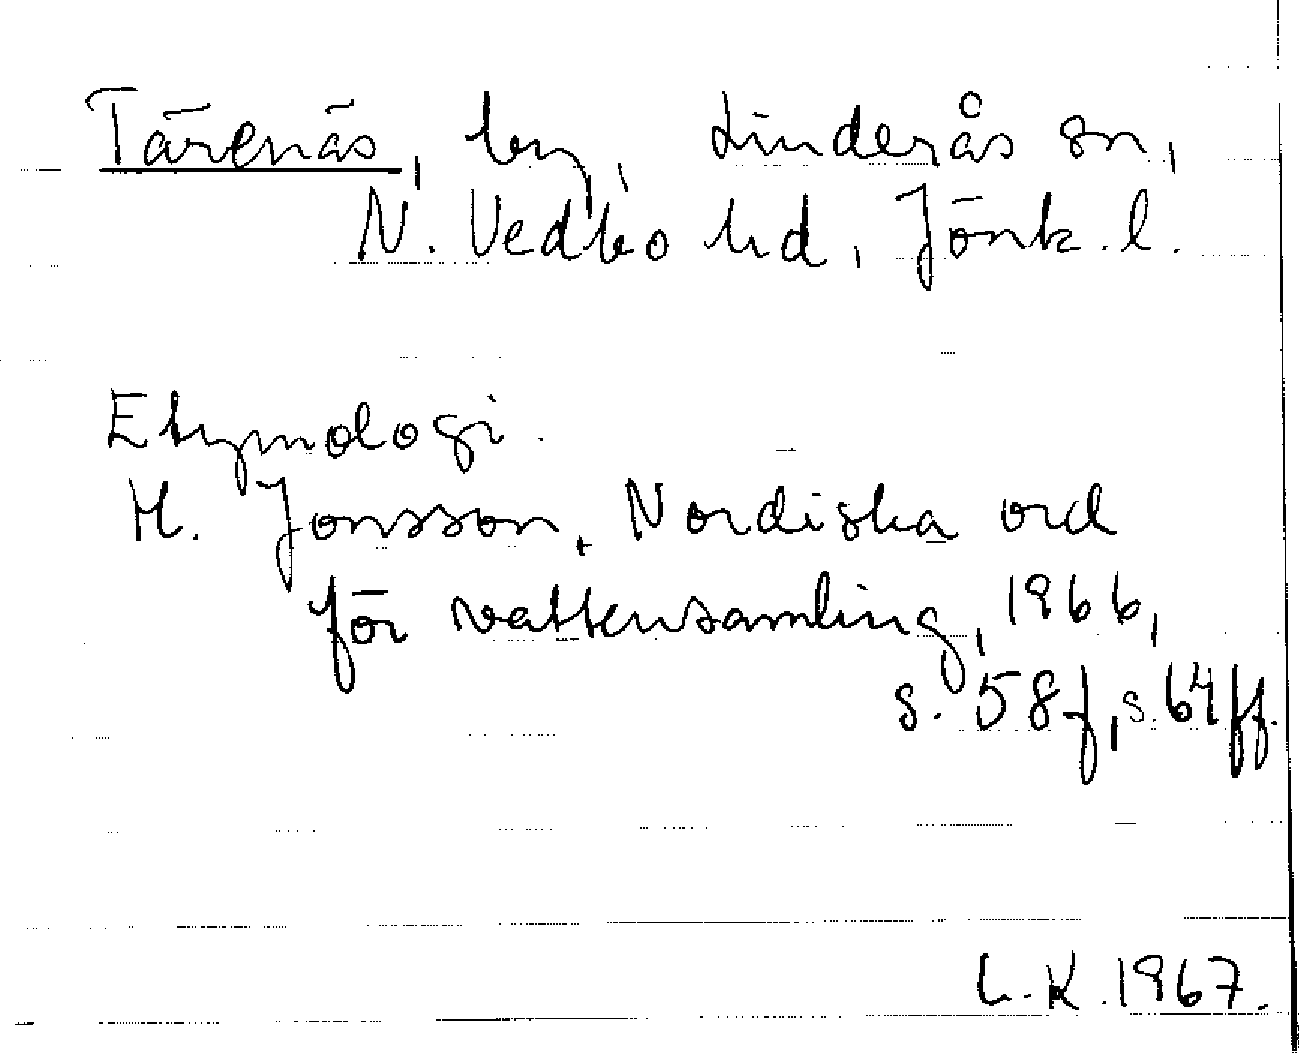 Tärenäs, by, Linderås sn,
N. Vedbo hd, Jönk. l.
Etymologi.
H. Jonsson, Nordiska ord
för vattensamling, 1966,
s. 58f, s. 64ff.
L.K. 1967.